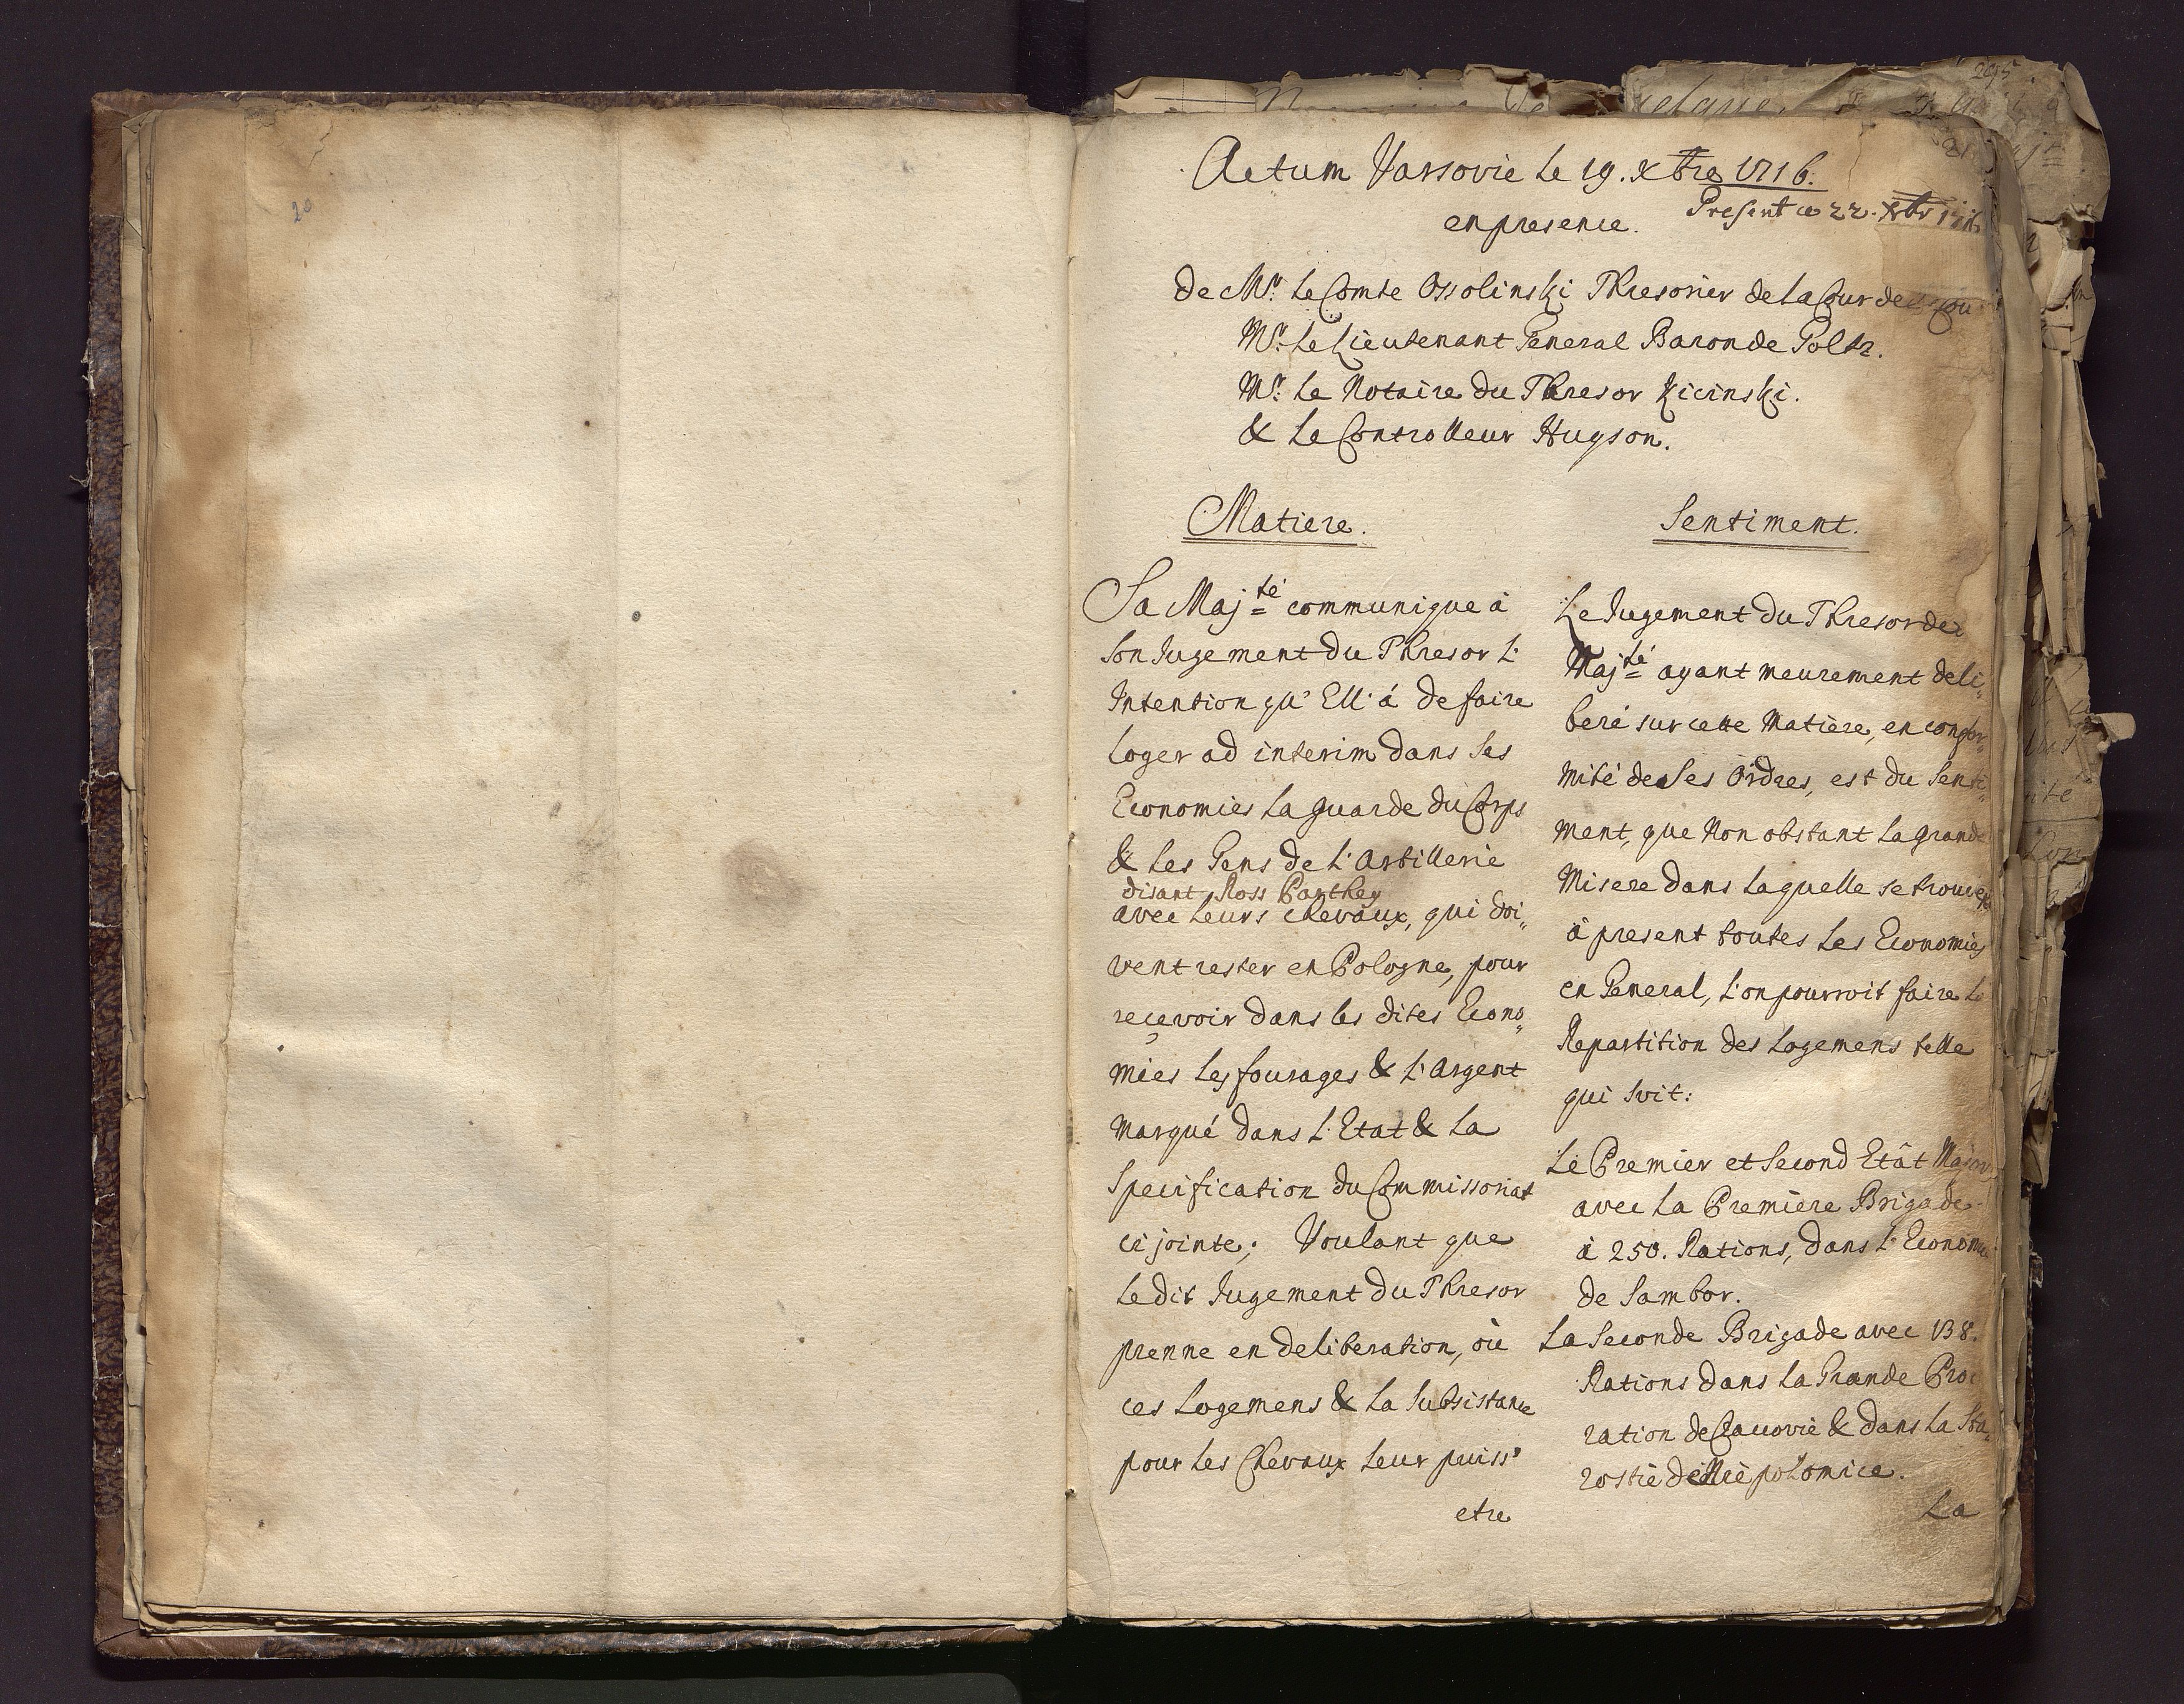 20
Actum Varsovie le 19. Xbre 1716.
Present ce 22. Xbr 1716
en presence.
de Mr. le Comte Ossolinski Thresorier de la Cour de
Mr. le Lieutenant General Baron de Goltz.
Mr. le Notaire du Thresor Kicinski.
& le Controlleur Hugson.
Matiere.
Sa Maj.té communique à
son Jugement du Thresor l'
Intention qu'Ell' á de faire
loger ad interim dans ses
Economies la guarde du Corps
& les Gens de l'Artillerie
disant Ross Parthey
avec leurs chevaux, qui doi„
vent rester en Pologne, pour
reçevoir dans les dites Econo„
mies les fourages & l'Argent
marqué dans l'Etat & la
Specification du Commissariat
ci jointe; Voulant que
le dit Jugement du Thresor
prenne en deliberation, où
ces Logemens & la Subsistance
pour les Chevaux leur puiss'
etre
Sentiment.
Le Jugement du Thresor de
Maj.té ayant meurement deli„
beré sur cette Matière, en confor„
mité de ses Ordres, est du Senti„
ment, que Non obstant la grande
Misere dans laquelle se trouvent
à present toutes les Economies
en General, l'on pourroit faire la
Repartition des Logemens telle
qui suit:
Le Premier et Second Etât Major
avec la Premiere Brigade
à 250. Rations, dans l'Economie
de Sambor.
La Seconde Brigade avec 138.
Rations dans la Grande Proc
ration de Cracovie & dans la Sta„
rostie de Niepolomice.
La